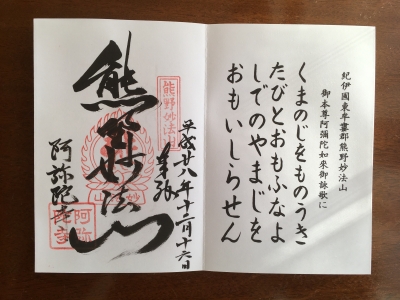 紀伊國東牟婁郡熊野妙法山
御本尊阿彌陀如来御詠歌に
くまのじをものうき
たびとおもふなよ
しでのやまじを
おもいしらせん
平成廿八年十二月十六日
奉拝
熊野妙法山
阿弥陀寺
熊野妙法